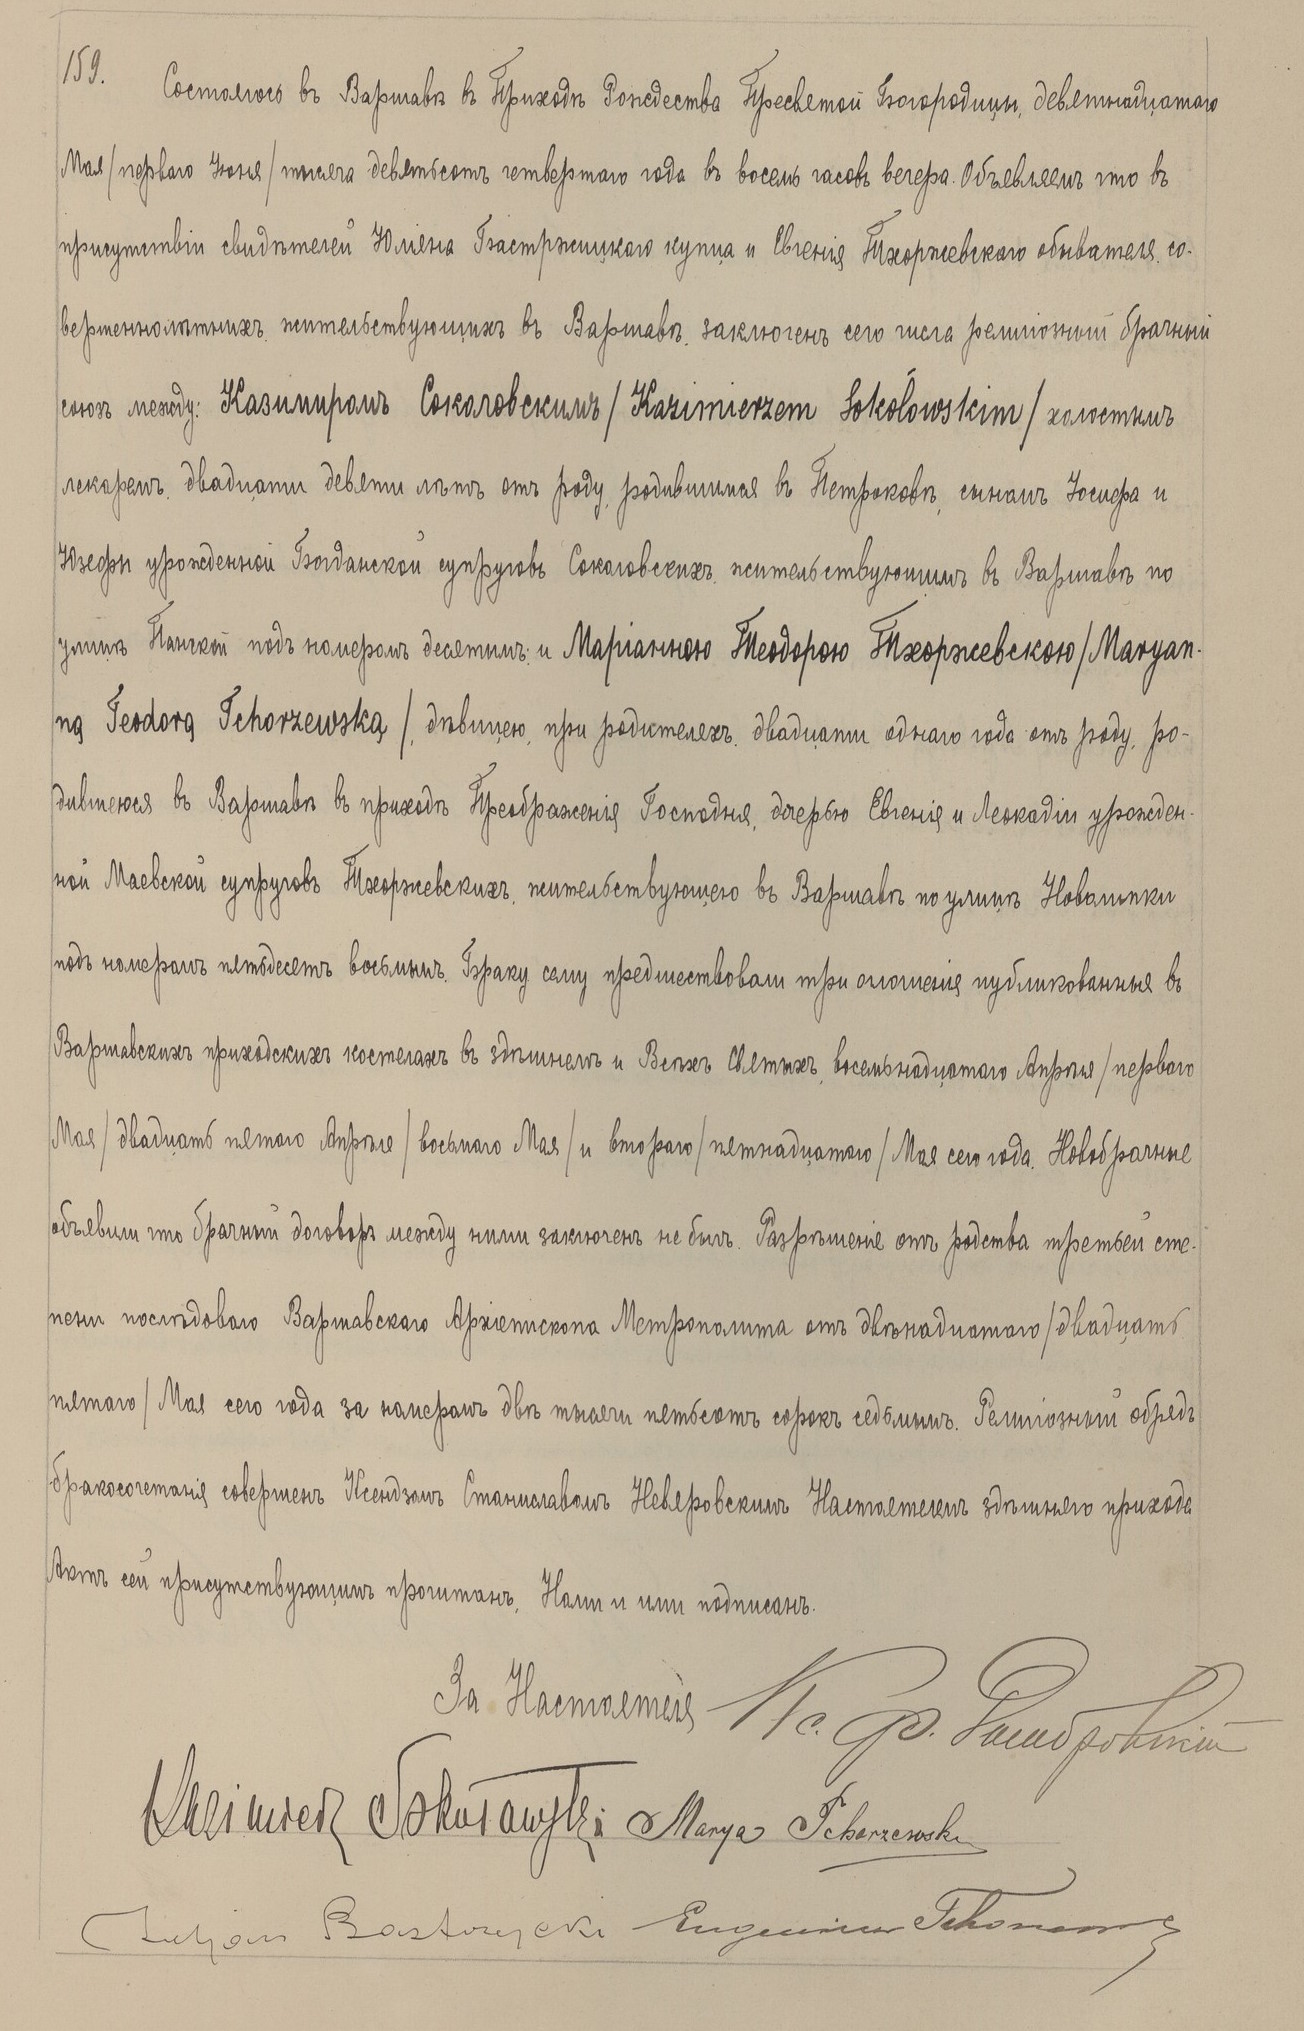 159.
Состоялось въ Варшавѣ въ Приходѣ Рождества Пресвятой Богородицы, девятнадцатаго
Мая /перваго Іюня/ тысяча девятьсотъ четвертаго года въ восемь часовъ вечера. Объявляемъ что въ
присутствіи свидѣтелей Юліяна Бастржицкаго купца и Евгенія Тхоржевскаго обывателя, со-
вершеннолѣтнихъ, жительствующихъ въ Варшавѣ, заключенъ сего числа религіозный брачный
союзъ между: Казимиромъ Соколовскимъ /Kazimierzem Sokołowskim/ холостымъ
лекаремъ, двадцати девяти лѣтъ отъ роду, родившимся въ Петроковѣ, сыномъ Іосифа и
Юзефы урожденной Богданской супруговъ Соколовскихъ, жительствующимъ въ Варшавѣ по
улицѣ Панской подъ номеромъ десятымъ; и Маріанною Теодорою Тхоржевскою /Maryan-
ną Teodorą Tchorzewską/, дѣвицею, при родителяхъ, двадцати одного года отъ роду, ро-
дившеюся въ Варшавѣ въ приходѣ Преображенія Господня, дочерью Евгенія и Леокадіи урожден-
ной Маевской супруговъ Тхоржевскихъ, жительствующею въ Варшавѣ по улицѣ Новолипки
подъ номеромъ пятьдесятъ восьмымъ. Браку сему предшествовали три оглашенія публикованныя въ
Варшавскихъ приходскихъ костелахъ въ здѣшнемъ и Всѣхъ Святыхъ, восемьнадцатаго Апрѣля /перваго
Мая/ двадцать пятаго Апрѣля /восьмаго Мая/ и втораго /пятнадцатаго/ Мая сего года. Новобрачные
объявили что брачный договоръ между ними заключенъ не былъ. Разрѣшеніе отъ родства третьей сте-
пени послѣдовало Варшавскаго Архіепископа Метрополита отъ двѣнадцатаго /двадцать
пятаго/ Мая сего года за номеромъ двѣ тысячи пятьсотъ сорокъ седьмымъ. Религіозный обрядъ
бракосочетанія совершенъ Ксендзомъ Станиславомъ Невяровскимъ Настоятелемъ здѣшняго прихода
Актъ сей присутствующимъ прочитанъ, Нами и ими подписанъ.
За Настоятеля Кс. Фр.
Kazimierz Sokołowski Marya Tchorzewska
Juljan Bastrzycki Eugeniusz Tchorzewski